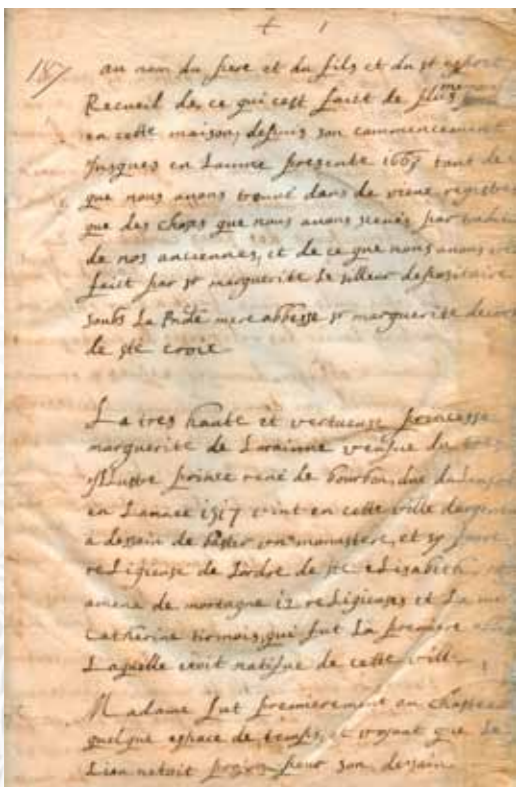 au nom du pere et du fils et du st esprit
Recueil de ce qui cest faict de plus
en cette maison, depuis son commencement
Jusques en Lannee presente tant de
que nous avons trouvé dans de vieux registres
que des choses que nous avons sceues par
de nos anciennes, et de ce que nous avons
faict par sr marguerite le depositaire
soubs La mere abbesse sr marguerite
de ste croix
La tres haute et vertueuse princesse
marguerite de Lorainne vefue du tres
Illustre prince rené de bourbon, duc
en Lannee 1517 vint en cette ville
a dessain de bastir vn monastere, et sy
religieuse de Lordre de ste elisabeth
amene de mortagne 12 religieuses et La
Catherine qui fut La premiere
Laquelle natifue de cette ville
Madame fut premierement au chasteau
quelque espace de temps, et voyant que Le
Lieu netoit propre pour son dessain